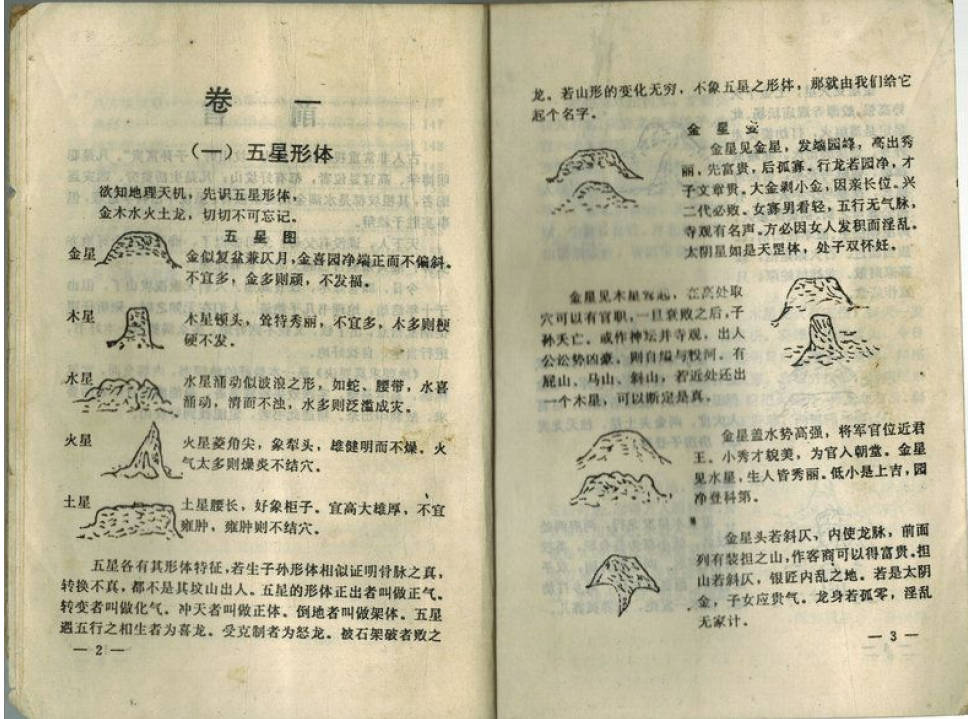 卷 一
（一）五星形体
欲知地理天机，先识五星形体，
金木水火土龙，切切不可忘记。
五 星 图
金星
金似复盆兼仄月，金喜园净端正而不偏斜。
不宜多，金多则顽，不发福。
木星
木星顿头，耸特秀丽，不宜多，木多则梗
硬不发。
水星
水星涌动似波浪之形，如蛇、腰带，水喜
涌动，清而不浊，水多则泛滥成灾。
火星
火星菱角尖，象犁头，雄健明而不燥。火
气太多则燥炎不结穴。
土星
土星腰长，好象柜子。宜高大雄厚，不宜
雍肿，雍肿则不结穴。
五星各有其形体特征，若生子孙形体相似证明骨脉之真，
转换不真，都不是其坟山出人。五星的形体正出者叫做正气。
转变者叫做化气。冲天者叫做正体。倒地者叫做架体。五星
遇五行之相生者为喜龙。受克制者为怒龙。被石架破者败之
— 2 —
龙。若山形的变化无穷，不象五星之形体，那就由我们给它
起个名字。
金 星
金星见金星，发端园峰，高出秀
丽，先富贵，后孤寡。行龙若园净，才
子文章贵。大金剥小金，因亲长位。兴
二代必败。女寡男看轻，五行无气脉，
寺观有名声。方必因女人发积而淫乱。
太阴星如是天罡体，处子双怀妊。
金星见木星耸起，在高处取
穴可以有官职，一旦衰败之后，子
孙夭亡。或作神坛并寺观，出人
公讼势凶豪，则自缢与投河。有
屁山、马山、斜山，若近处还出
一个木星，可以断定是真。
金星盖水势高强，将军官位近君
王。小秀才貌美，为官入朝堂。金星
见水星，生人皆秀丽。低小是上吉，园
净登科第。
金星头若斜仄，内使龙脉，前面
列有装担之山，作客商可以得富贵。担
山若斜仄，银匠内乱之地。若是太阴
金，子女应贵气。龙身若孤零，淫乱
无家计。
— 3 —